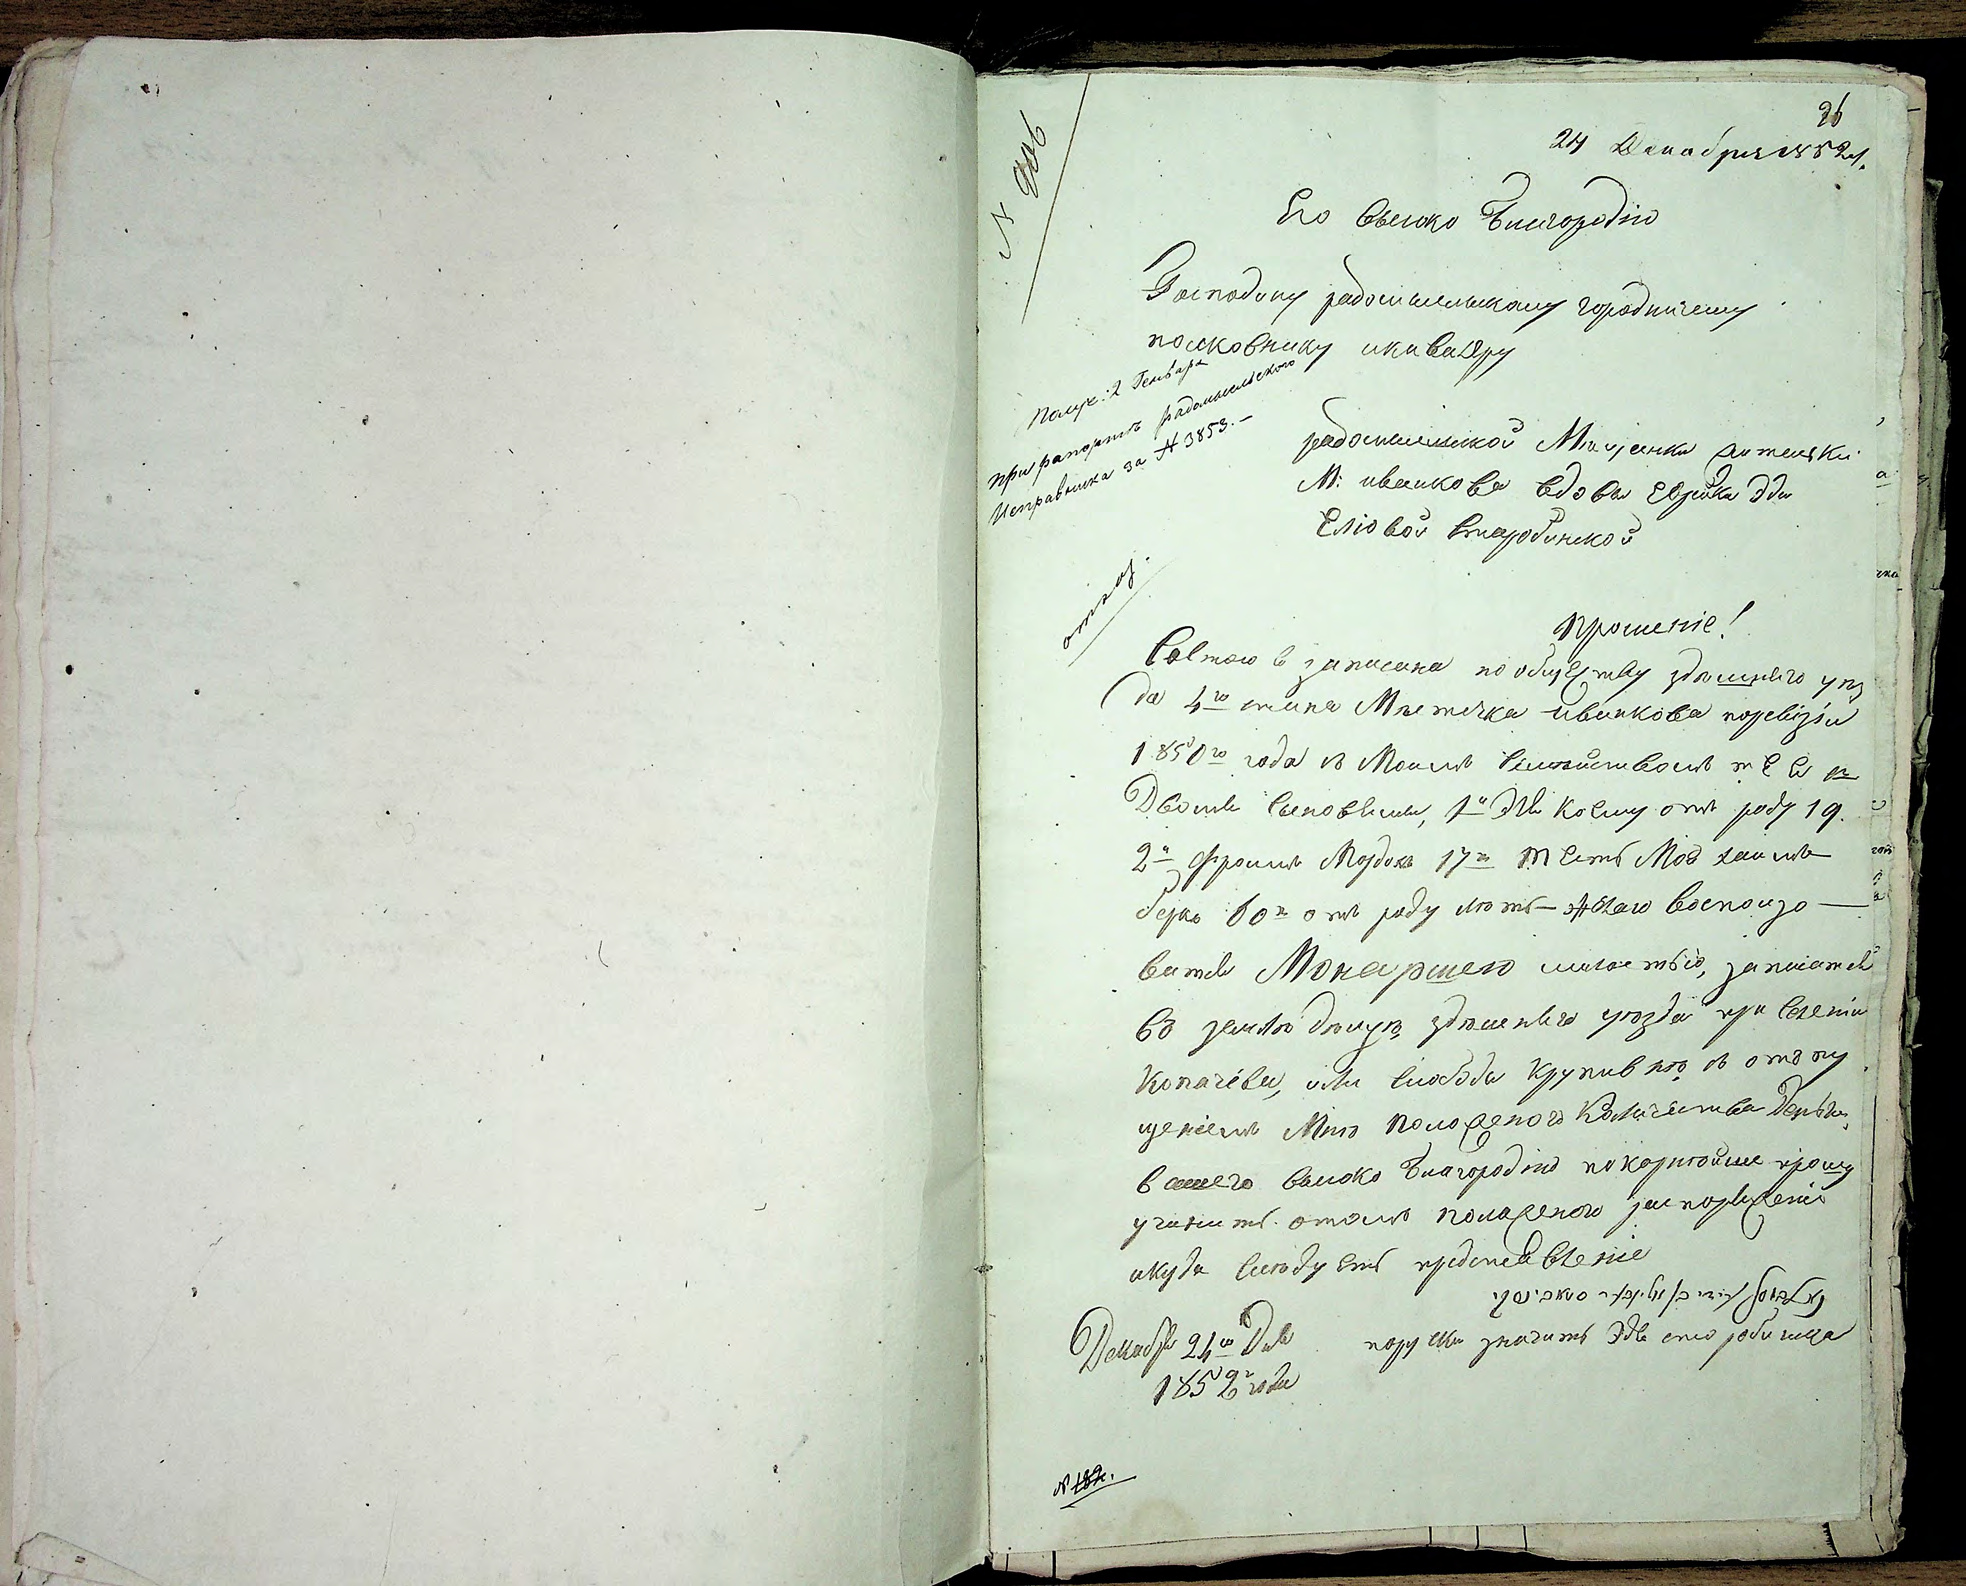 26
24 Декабря 1852 г.
№ 906
Его Высоко Благородію
Господину радомысльскому городничему
полковнику и кавалеру
Получ: 2 Генваря
при рапорте Радомысльскаго
Исправника за № 3853.-
радомысльской Мещанки жителки
М: иванкова вдовы Еврейки Эди
Еліовой Стародинской
Прошеніе!
Состою в записана по обществу здешнего уез
да 4го стана Местечка иванкова поревізіи
1850го года съ Моимъ Семействомъ т Е ъ
Двоми Сыновями, 1й Эли Коему отъ роду 19.
2й Фроимъ Мордко 17 зять Мой хаимъ
берко 60 отъ роду летъ Желаю воспользо
ватся Монаршею милостью, записатся
въ земледельцы здешнего уезда при селении
Копачева, или слободы Крупивню съ отпу
щеніемъ Мне положеного Количества Земли
вашего высоко благородію покорнейше прошу
учинить. отомъ положеного распоряженіе
икуда следуетъ представленіе
Декабря 24го Дня
порусски значитъ Эдя стародинска
1852 года